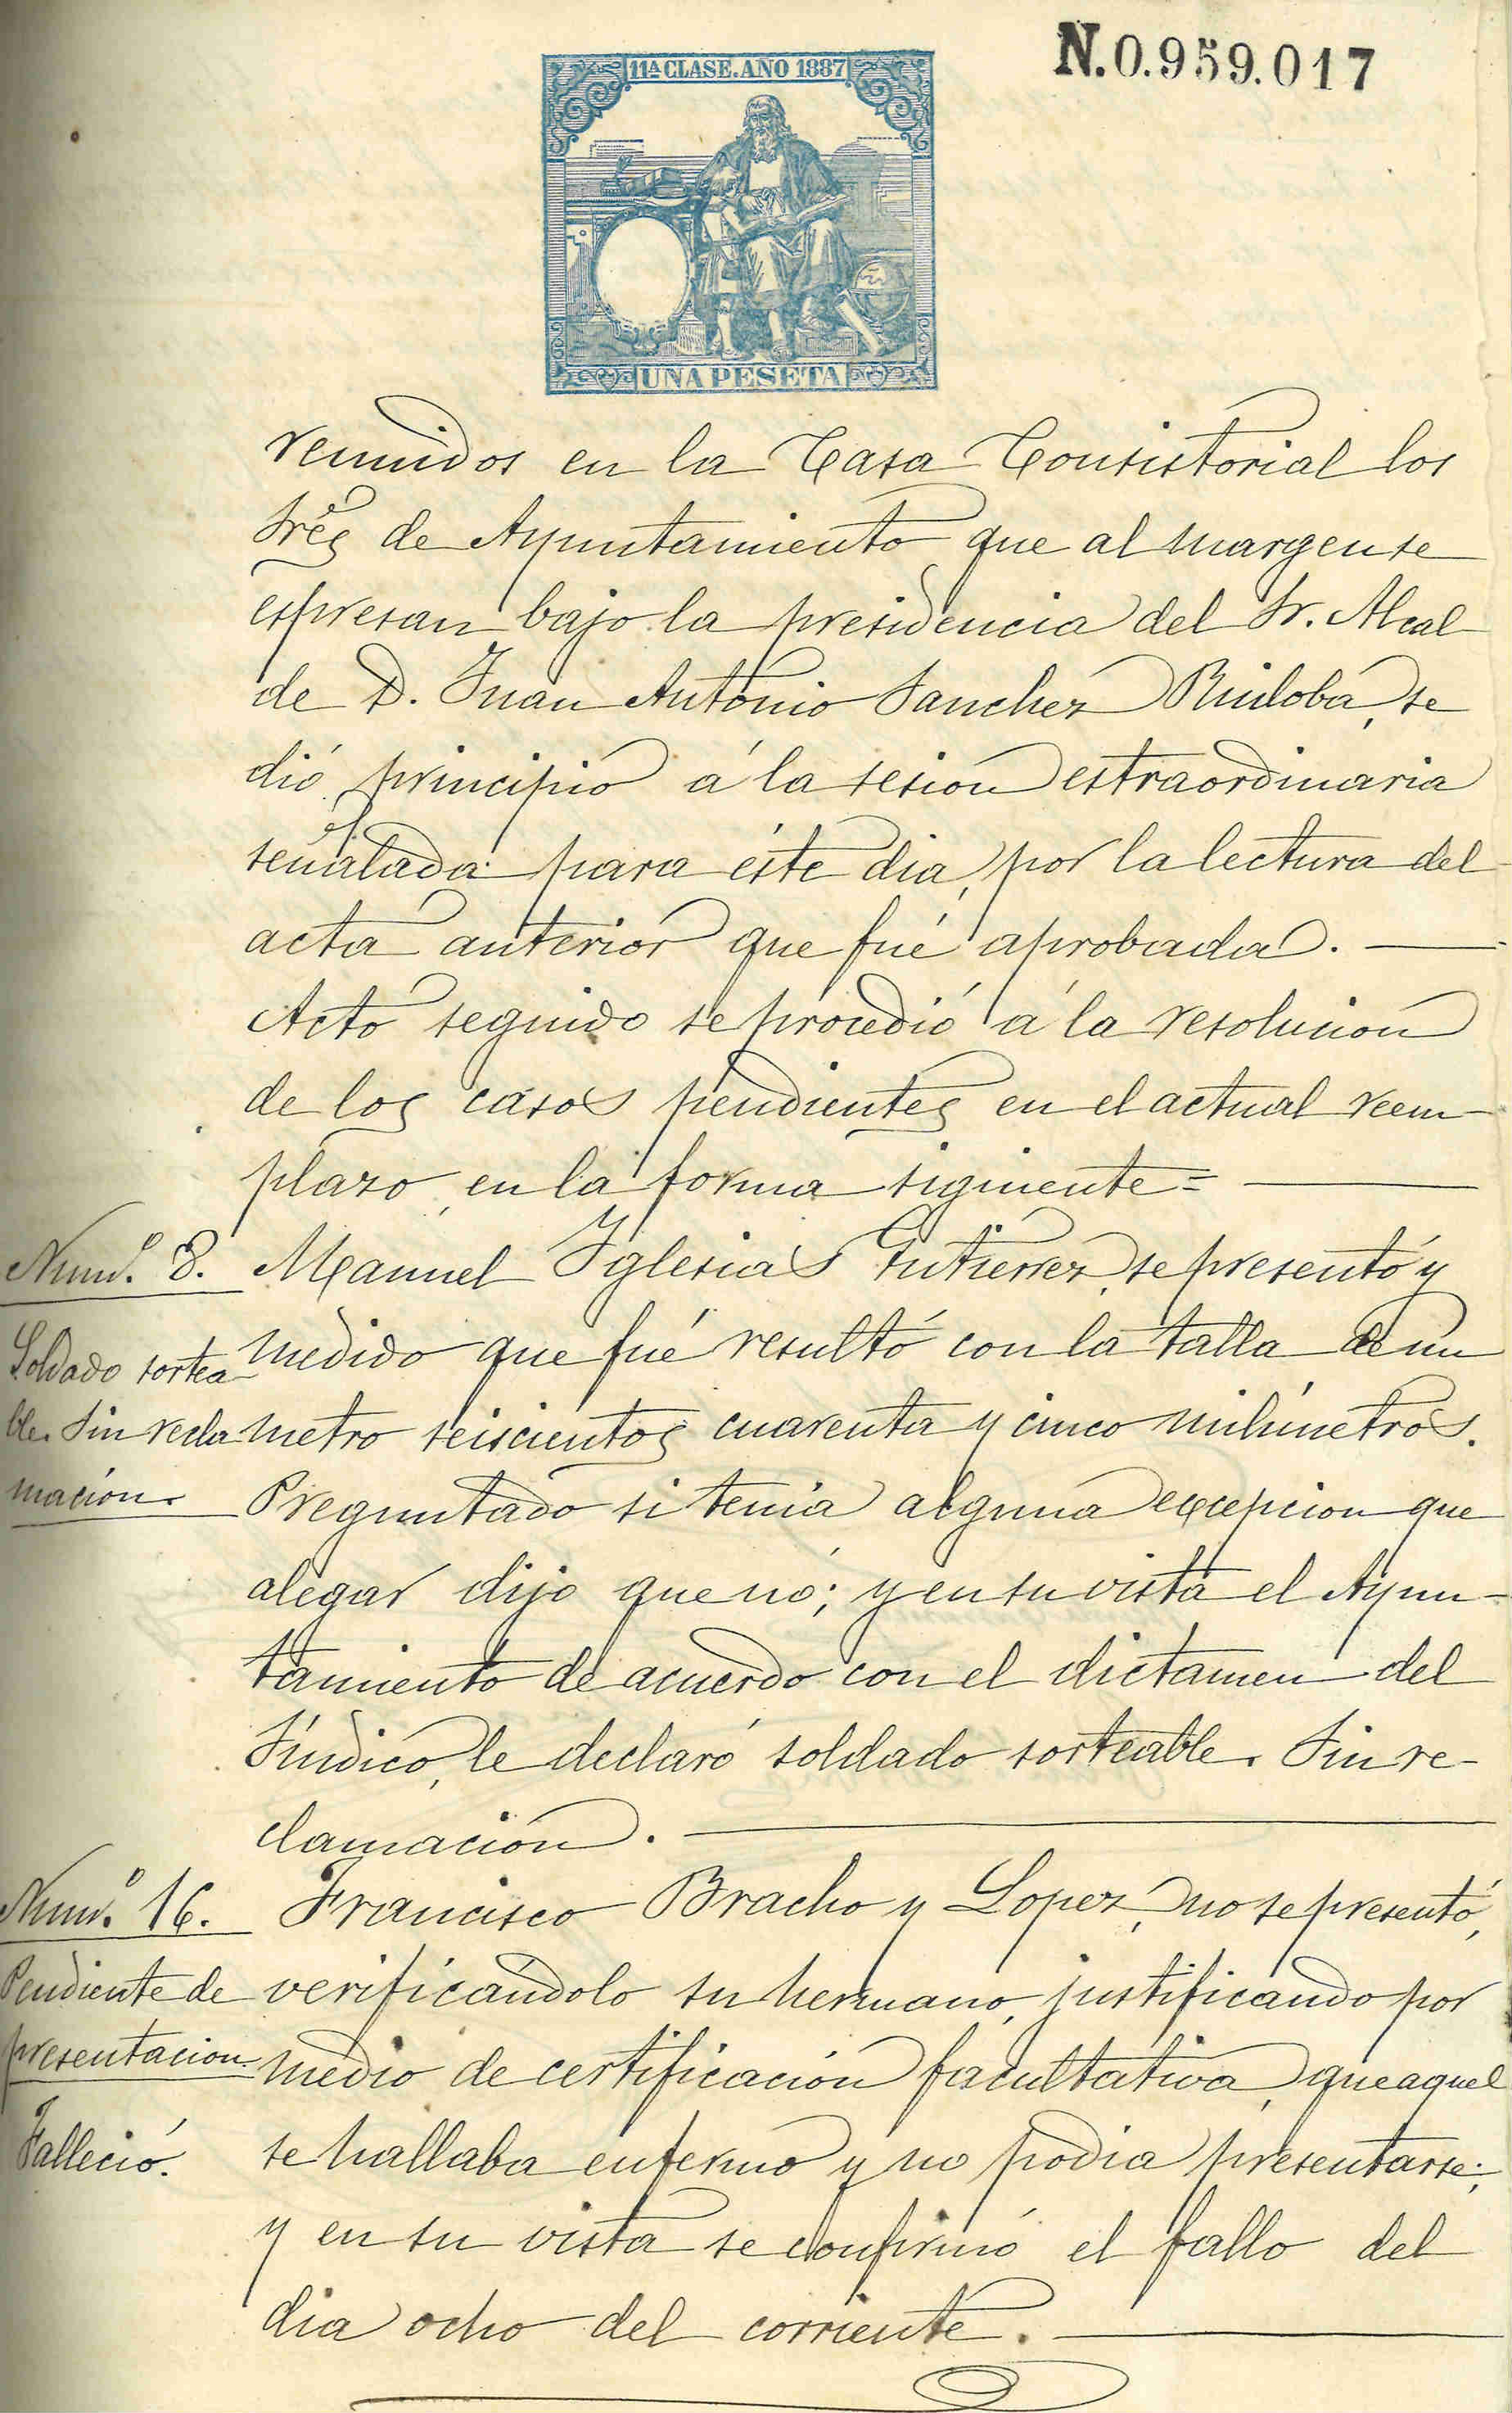 N.0.959.017
11ª CLASE. AÑO 1887
UNA PESETA
reunidos en la Casa Consistorial los
Sres de Ayuntamiento que al margen se
espresan bajo la presidencia del Sr. Alcal
de D. Juan Antonio Sanchez Ruiloba, se
dió principio á la sesion estraordinaria
señalada para éste dia, por la lectura del
acta anterior que fué aprobada.
Acto seguido se procedió á la resolucion
de los casos pendientes en el actual reem-
plazo, en la forma siguiente=
Numº. 8. Manuel Iglesias Gutierrez, se presentó y
Soldado sortea- medido que fué resultó con la talla de un
ble. Sin recla metro seiscientos cuarenta y cinco milímetros.
macion. Preguntado si tenia alguna excepcion que
alegar dijo que nó; y en su vista el Ayun-
tamiento de acuerdo con el dictamen del
Síndico, le declaró soldado sorteable. Sin re-
clamación.
Numº. 16. Francisco Bracho y Lopez, no se presentó,
Pendiente de verificándolo su hermano, justificando por
presentacion. medio de certificación facultativa, que aquel
Falleció. se hallaba enfermo y no podia presentarse;
y en su vista se confirmó el fallo del
dia ocho del corriente.